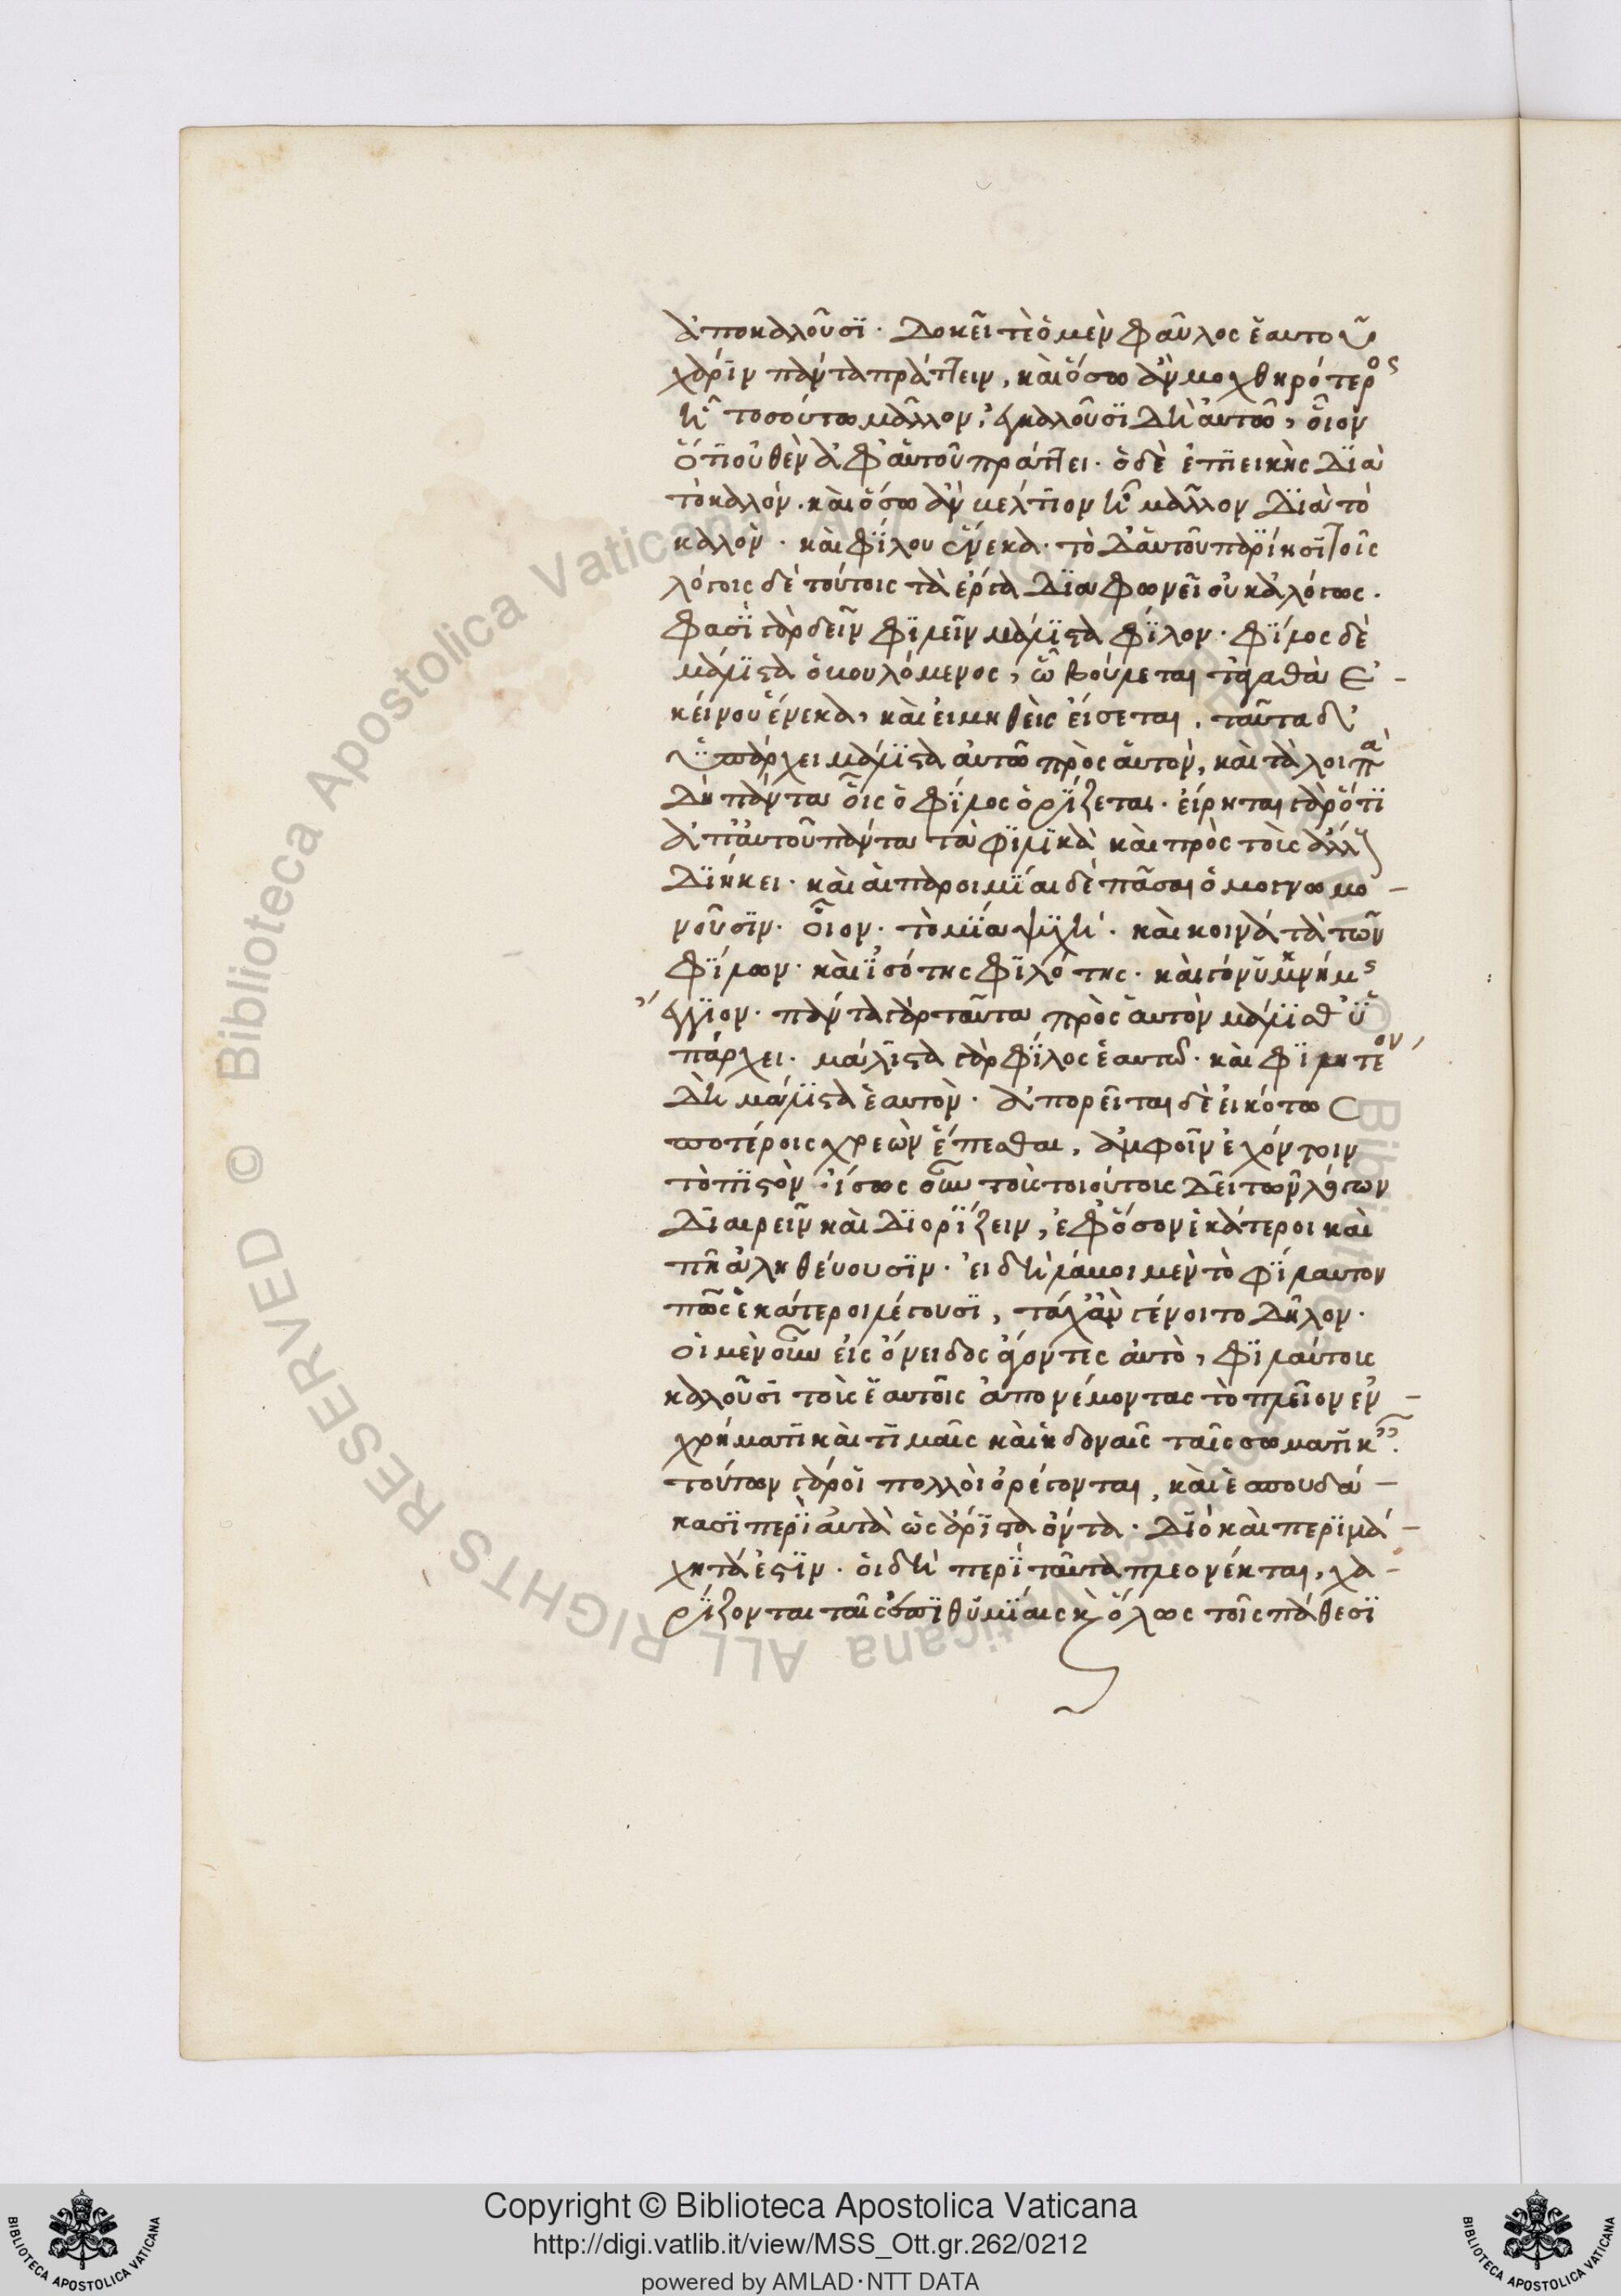 ἀποκαλοῦσι. δοκεῖ τὲ ὁ μὲν φαῦλος ἑαυτοῦ
χάριν πάντα πράττειν, καὶ ὅσω ἂν μοχθηρότερος
ἦ τοσούτω μᾶλλον, ἐγκαλοῦσι δὴ αὐτῶ, οἷον
ὅτι οὐθὲν ἀφ' αὑτοῦ πράττει. ὁ δὲ ἐπιεικὴς διὰ
τὸ καλόν. καὶ ὅσω ἂν βελτίον ἦ μᾶλλον διὰ τὸ
καλὸν. καὶ φίλου ἕνεκα. τὸ δ' αὑτοῦ παρίησι τοῖς
λόγοις δὲ τούτοις τὰ ἔργα διαφωνεῖ οὐκ ἀλόγως.
φασὶ γὰρ δεῖν φιλεῖν μάλιστα φίλον. φίλος δὲ
μάλιστα ὁ βουλόμενος, ὧ βούλεται τἀγαθὰ ἐ-
κείνου ἕνεκα, καὶ εἰ μηθεὶς εἴσεται, ταῦτα δ'
ὑπάρχει μάλιστα αὐτῶ πρὸς αὑτόν, καὶ τὰ λοιπὰ
δὴ πάντα οἷς ὁ φίλος ὁρίζεται. εἴρηται γὰρ ὅτι
ἀπ' αὐτοῦ πάντα τὰ φιλικὰ καὶ πρὸς τοὺς ἄλλους
διήκει. καὶ αἱ παροιμίαι δὲ πᾶσαι ὁμογνωμο-
νοῦσιν. οἷον. τὸ μία ψυχή. καὶ κοινὰ τὰ τῶν
φίλων. καὶ ἰσότης φιλότης. καὶ γόνυ κνήμης
ἔγγιον. πάντα γὰρ ταῦτα πρὸς αὑτὸν μάλισθ' ὑ
πάρχει. μάλιστα γὰρ φίλος ἑαυτῶ. καὶ φιλητέον,
δὴ μάλιστα ἑαυτὸν. ἀπορεῖται δὲ εἰκότως
ποτέροις χρεὼν ἕπεσθαι, ἀμφοῖν ἐχόντοιν
τὸ πιστὸν. ἴσως οὖν τοὺς τοιούτους δεῖ τῶν λόγων
διαιρεῖν καὶ διορίζειν, ἐφ' ὅσον ἑκάτεροι καὶ
πῆ ἀληθεύουσιν. εἰ δὴ λάβοιμεν τὸ φίλαυτον
πῶς ἑκάτεροι λέγουσι, τάχ' ἂν γένοιτο δῆλον.
οἱ μὲν οὖν εἰς ὄνειδος ἄγοντες αὐτὸ, φιλαύτους
καλοῦσι τοὺς ἑαυτοῖς ἀπονέμοντας τὸ πλεῖον ἐν-
χρήμασι καὶ τιμαῖς καὶ ἡδοναῖς ταῖς σωματικαῖς.
τούτων γὰρ οἱ πολλοὶ ὀρέγονται, καὶ ἐσπουδά-
κασι περὶ αὐτὰ ὡς ἄριστα ὄντα. διὸ καὶ περιμά-
χητά ἐστιν. οἱ δὴ περὶ ταῦτα πλεονέκται, χα-
ρίζονται ταῖς ἐπιθυμίαις κ ὅλως τοῖς πάθεσι
Copyright © Biblioteca Apostolica Vaticana
http://digi.vatlib.it/view/MSS_Ott.gr.262/0212
powered by AMLAD·NTT DATA
BIBLIOTECA APOSTOLICA VATICANA
BIBLIOTECA APOSTOLICA VATICANA
© Biblioteca Apostolica Vaticana ALL RIGHTS RESERVED